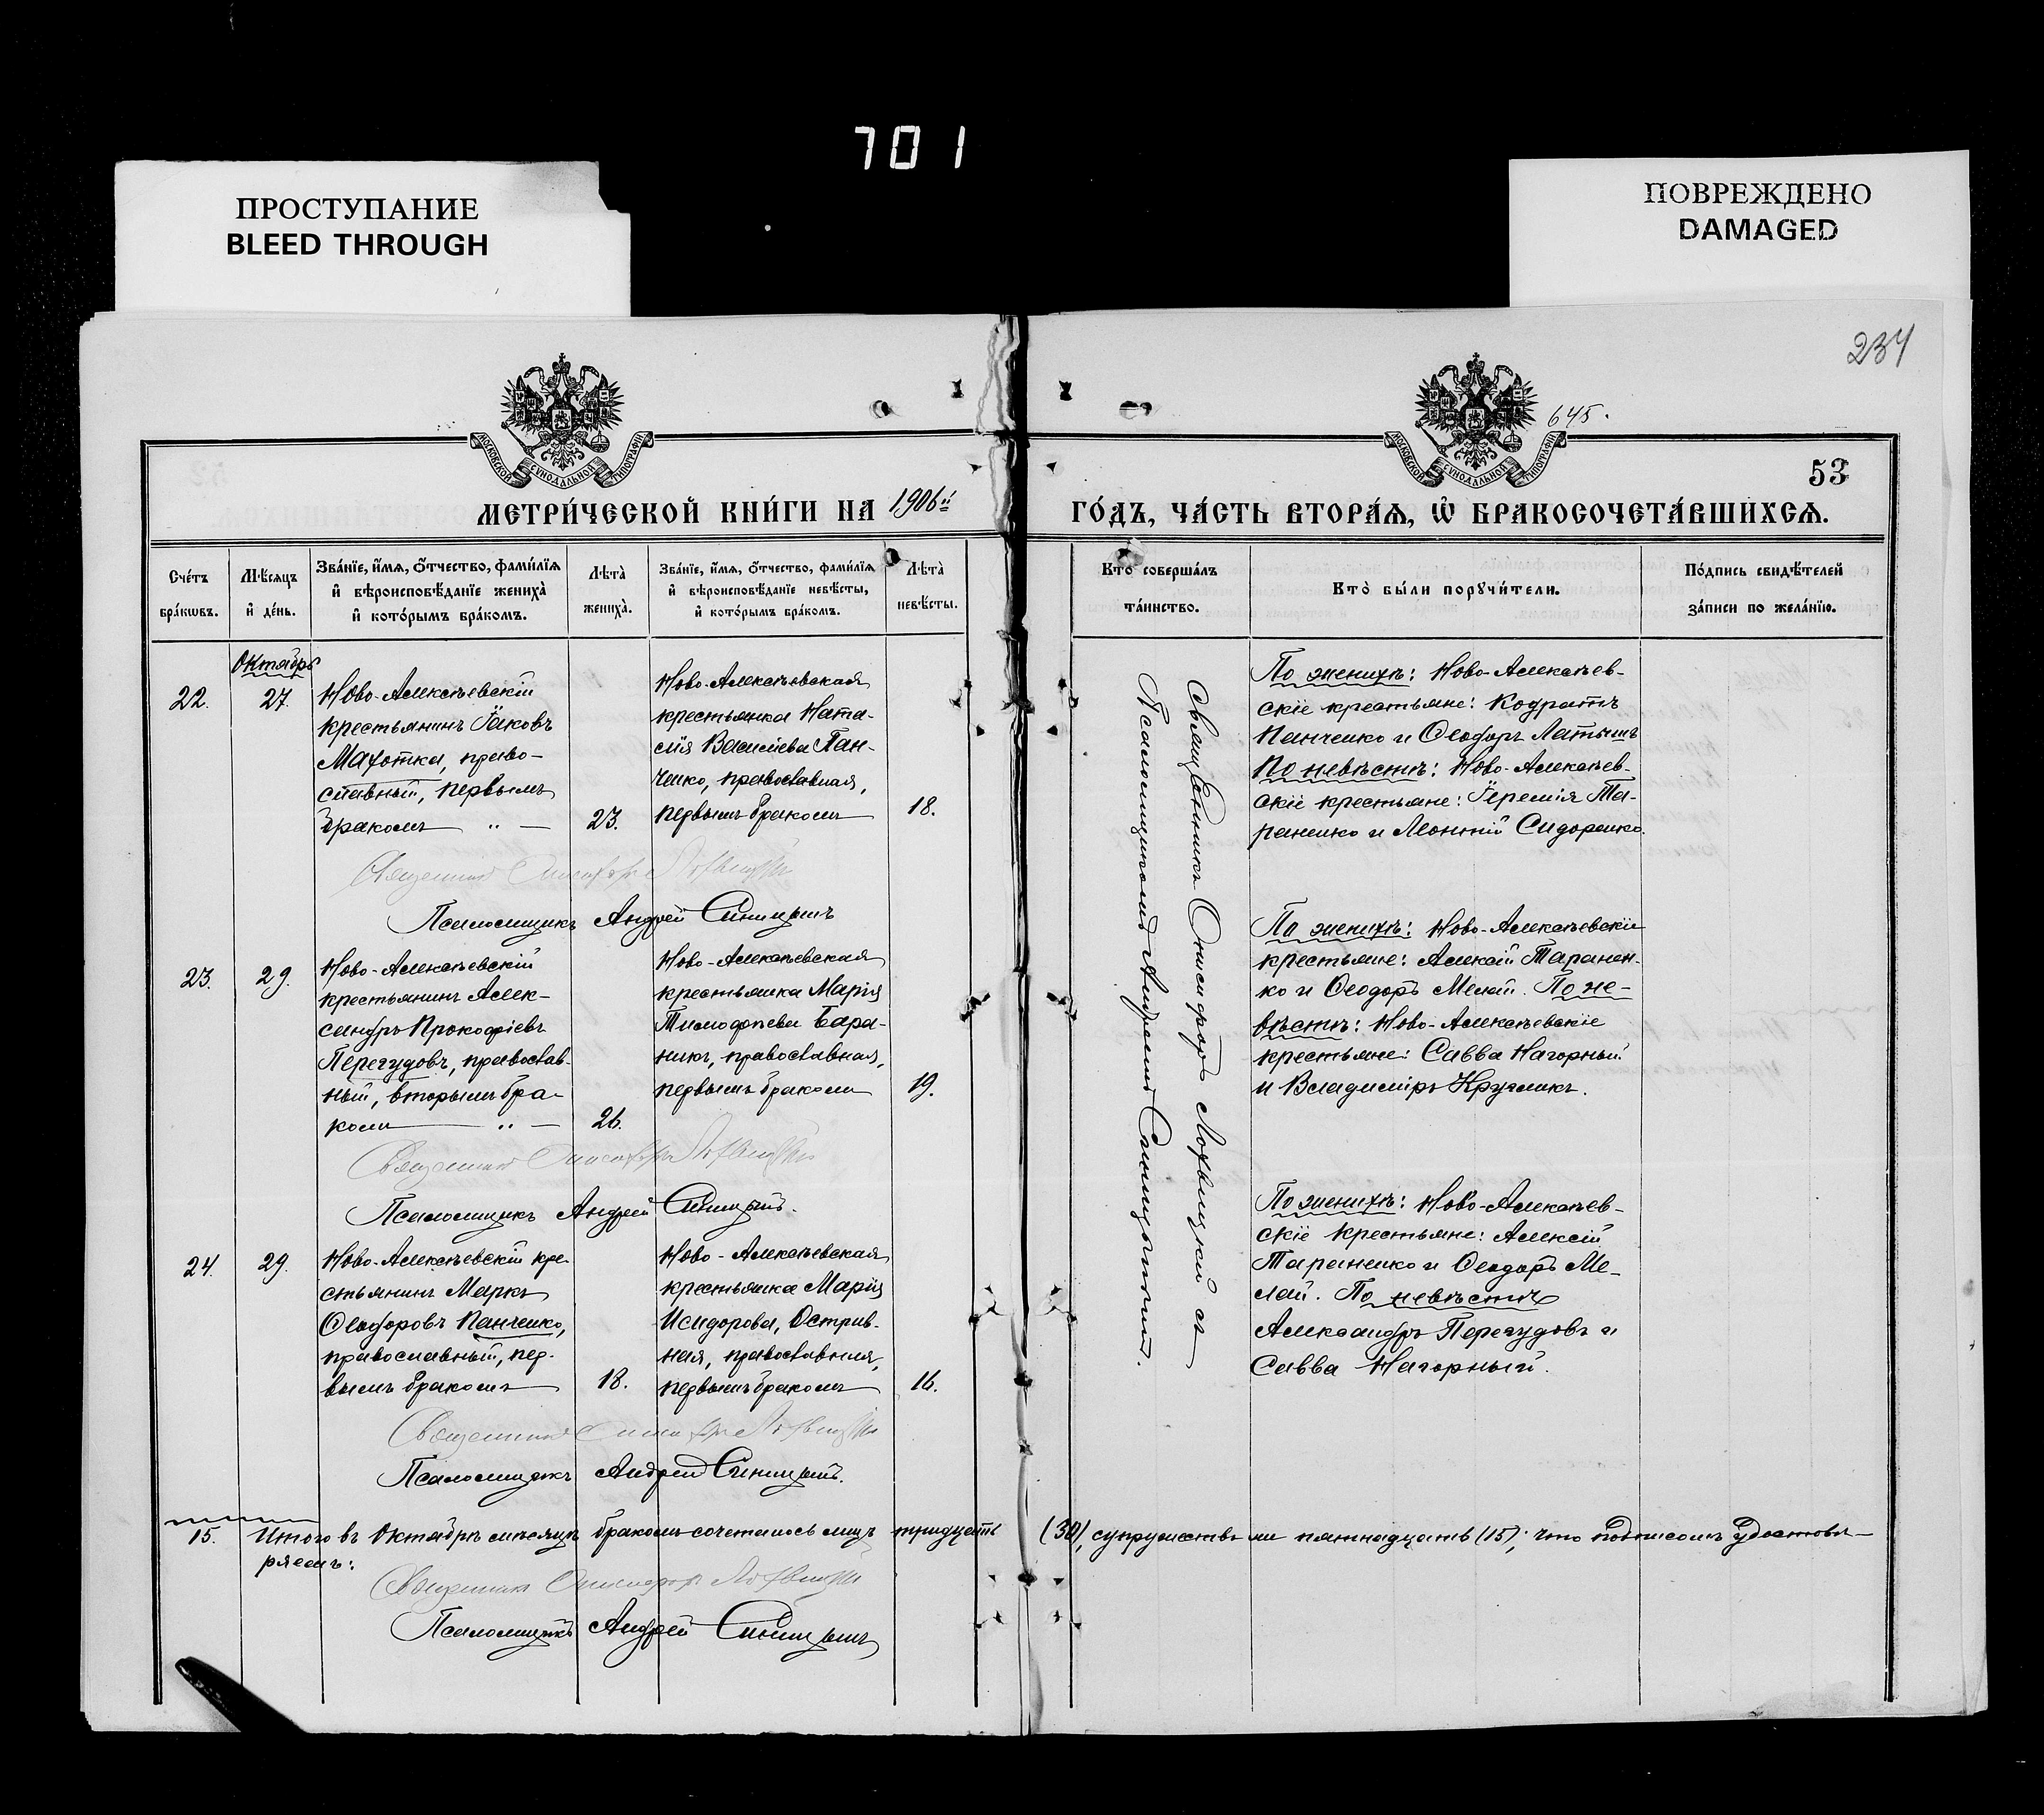 701
ПРОСТУПАНИЕ
BLEED THROUGH
ПОВРЕЖДЕНО
DAMAGED
234
645.
МОСКОВСКОЙ СѴНОДАЛЬНОЙ ТИПОГРАФІИ
МОСКОВСКОЙ СѴНОДАЛЬНОЙ ТИПОГРАФІИ
53
МЕТРИ́ЧЕСКОЙ КНИ́ГИ НА 1906й
ГО́ДЪ, ЧА́СТЬ ВТОРА́Я, Ѡ҆ БРАКОСОЧЕТА́ВШИХСЯ.
Сче́тъ
бра́кѡвъ.
Мѣ́сяцъ
и҆ де́нь.
Зва́нїе, и҆́мя, ѻ҆́тчество, фами́лїя
и҆ вѣроисповѣ́данїе жениха̀
и҆ кото́рымъ бра́комъ.
Лѣта̀
жениха̀.
Зва́нїе, и҆́мя, ѻ҆́тчество, фами́лїя
и҆ вѣроисповѣ́данїе невѣ́сты,
и҆ кото́рымъ бра́комъ.
Лѣта̀
невѣ́сты.
Кто̀ соверша́лъ
та́инство.
Кто̀ бы́ли порꙋчи́тели.
По́дпись свидѣ́телей
за́писи по жела́нїю.
Октябрь
22.
27.
Ново-Алексѣевскій
крестьянинъ Іаковъ
Махотка, право-
славный, первымъ
бракомъ
23.
Ново-Алексѣевская
крестьянка Ната-
лія Василіева Пан-
ченко, православная,
первымъ бракомъ
18.
Священникъ Онисифоръ Лохвицкій съ
Псаломщикомъ Андреемъ Синицынымъ.
По женихѣ: Ново-Алексѣев-
скіе крестьяне: Кодратъ
Панченко и Ѳеодоръ Латышъ
По невѣстѣ: Ново-Алексѣев-
скіе крестьяне: Іеремія Та-
раненко и Леонтій Сидоренко.
Священникъ Онисифоръ Лохвицкій
Псаломщикъ Андрей Синицынъ
23.
29.
Ново-Алексѣевскій
крестьянинъ Алек-
сандръ Прокофіевъ
Перегудовъ, православ-
ный, вторымъ бра-
комъ
26.
Ново-Алексѣевская
крестьянка Марія
Тимофѣева Бара-
никъ, православная,
первымъ бракомъ
19.
По женихѣ: Ново-Алексѣевскіе
крестьяне: Алексѣй Таранен-
ко и Ѳеодоръ Мелай. По не-
вѣстѣ: Ново-Алексѣевскіе
крестьяне: Савва Нагорный
и Владиміръ Кругликъ.
Священникъ Онисифоръ Лохвицкій
Псаломщикъ Андрей Синицынъ.
24.
29.
Ново-Алексѣевскій кре-
стьянинъ Маркъ
Ѳеодоровъ Панченко,
православный, пер-
вымъ бракомъ
18.
Ново-Алексѣевская
крестьянка Марія
Исидорова, Острив-
ная, православная,
первымъ бракомъ
16.
По женихѣ: Ново-Алексѣев-
скіе крестьяне: Алексій
Тараненко и Ѳеодоръ Ме-
лай. По невѣстѣ
Александръ Перегудовъ и
Савва Нагорный.
Священникъ Онисифоръ Лохвицкій
Псаломщикъ Андрей Синицынъ.
15. Итого въ Октябрѣ мѣсяцѣ бракомъ сочеталось лицъ тридцать (30), супружествъ пятнадцать (15); что подписомъ удостовѣ-
ряемъ:
Священникъ Онисифоръ Лохвицкій
Псаломщикъ Андрей Синицынъ